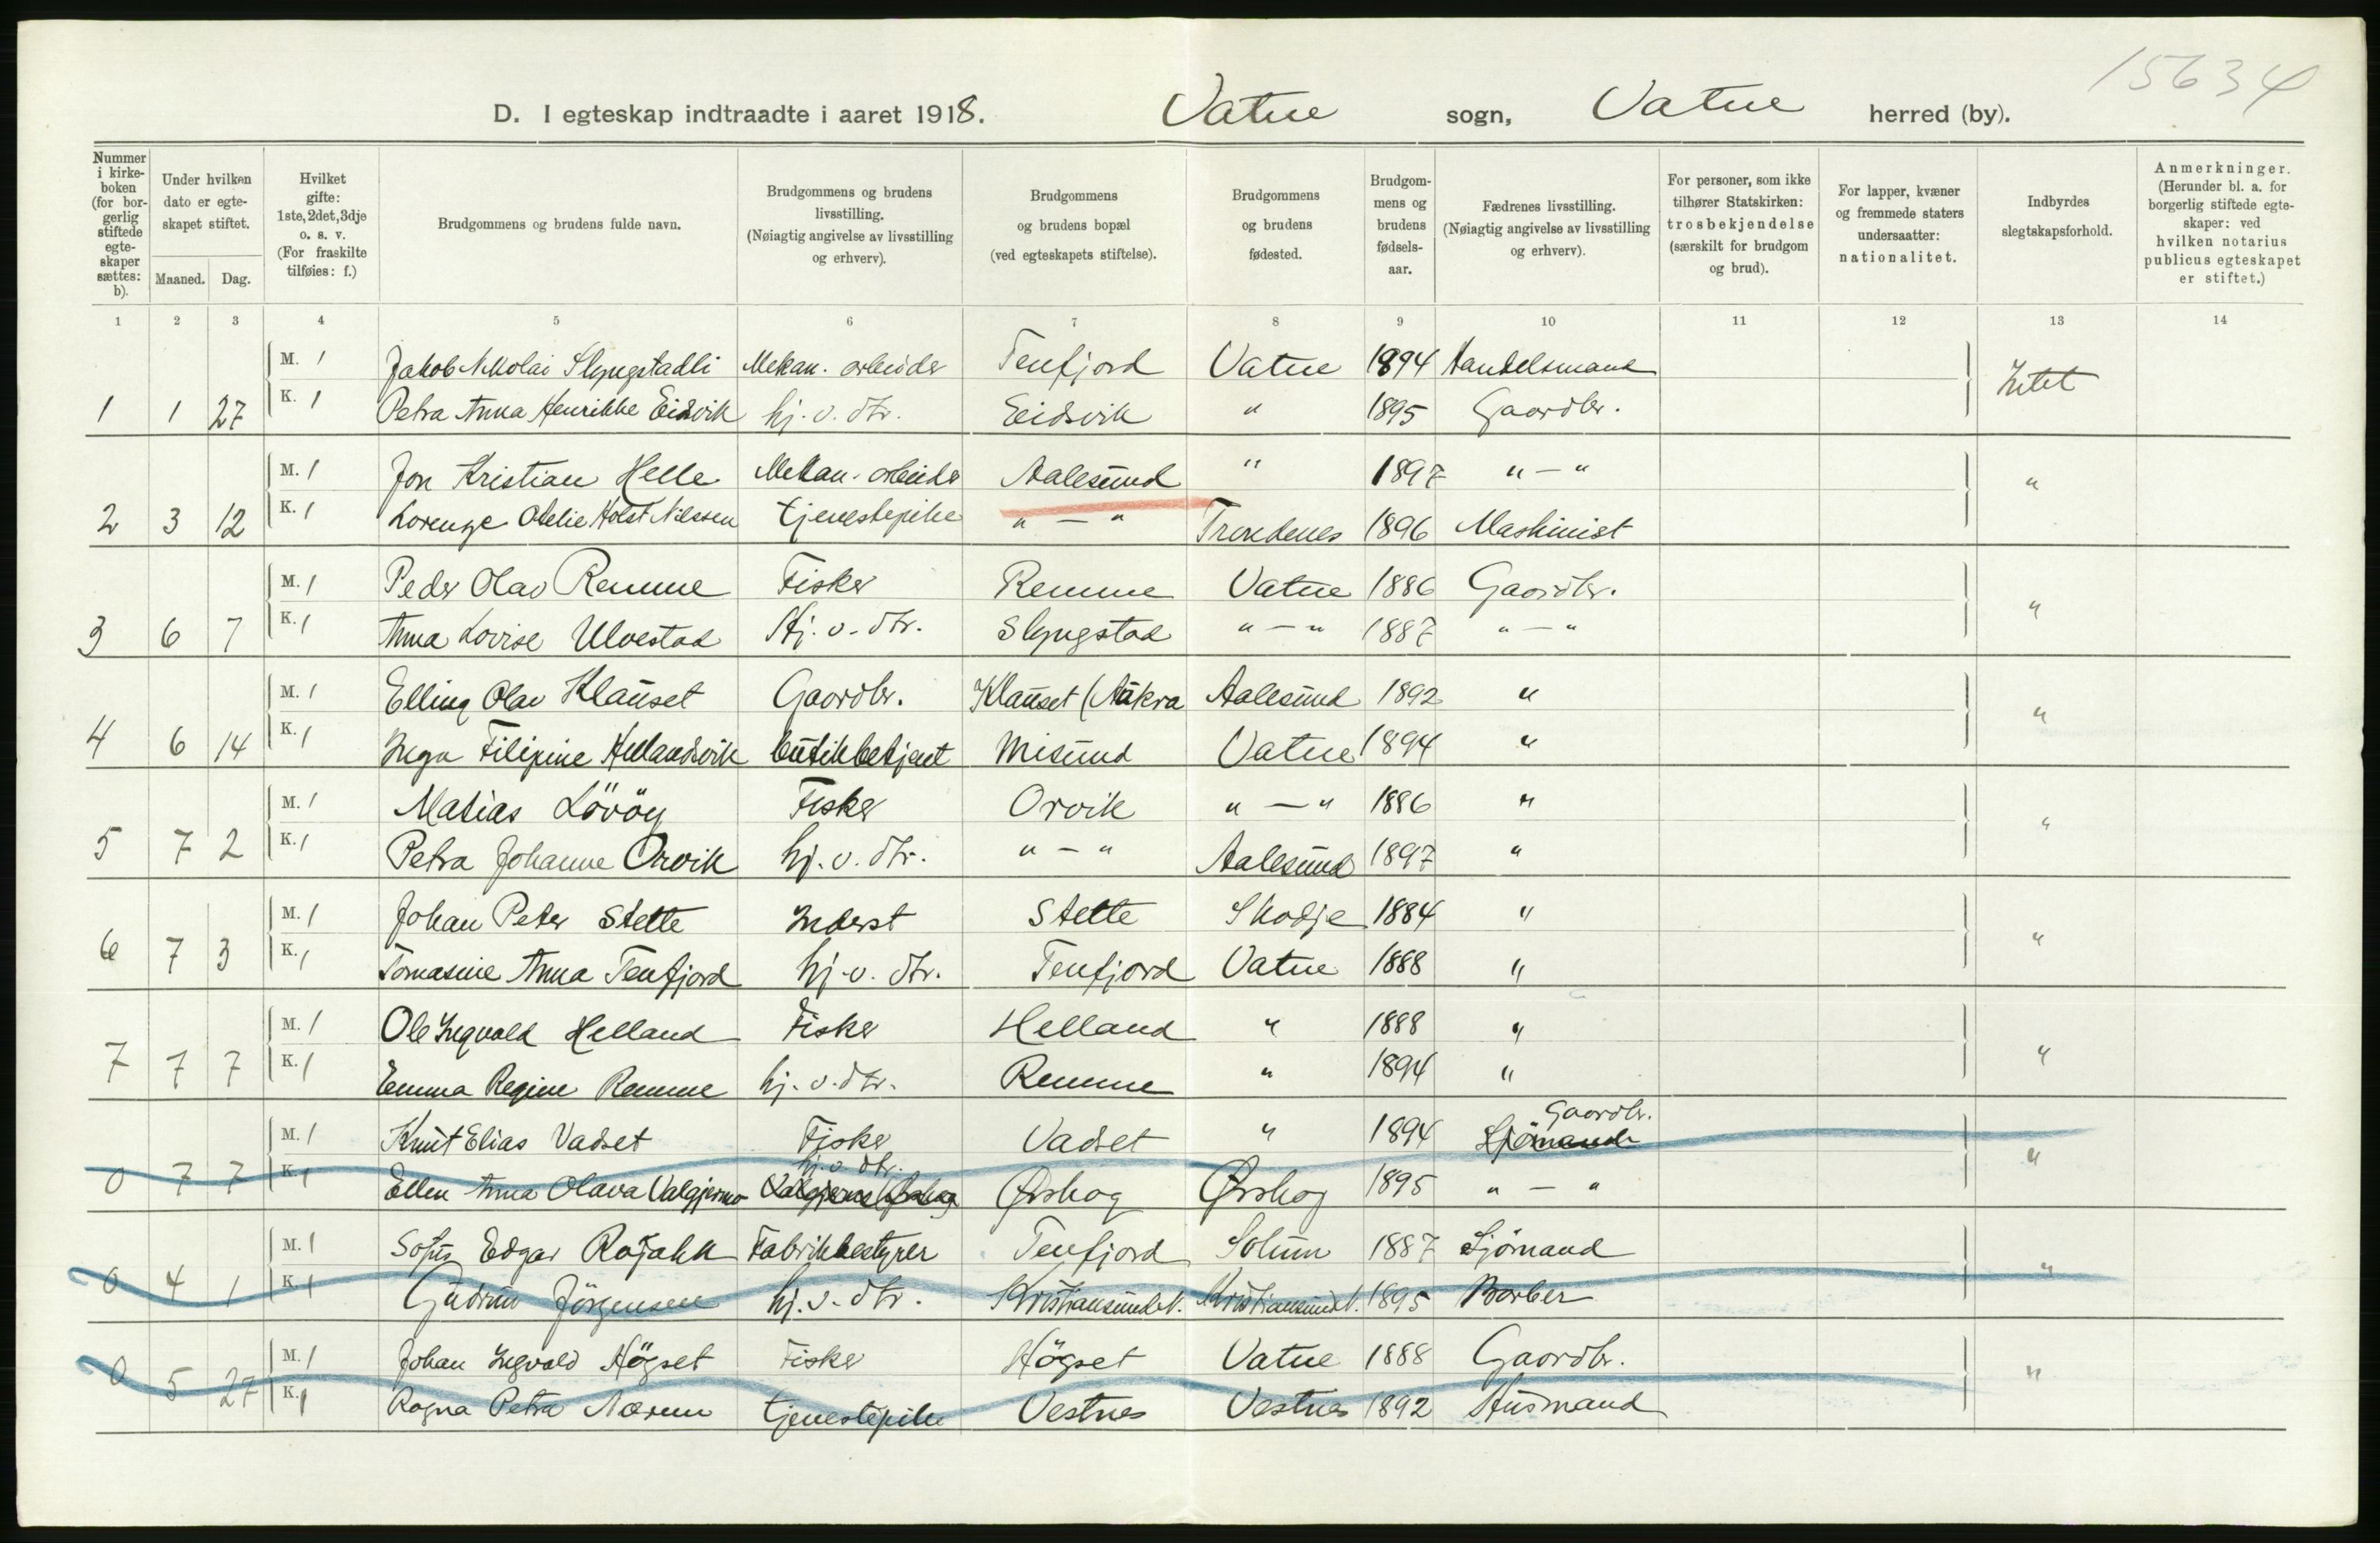 15634
D. I egteskap indtraadte i aaret 1918. Vatne sogn, Vatne herred (by).
Nummer i kirke-boken (for bor-gerlig stiftede egte-skaper sættes: b).
Under hvilken dato er egte-skapet stiftet.
Maaned. Dag.
Hvilket gifte: 1ste, 2det, 3dje o. s. v. (For fraskilte tilføies: f.)
Brudgommens og brudens fulde navn.
Brudgommens og brudens livsstilling. (Nøiagtig angivelse av livsstilling og erhverv).
Brudgommens og brudens bopæl (ved egteskapets stiftelse).
Brudgommens og brudens fødested.
Brudgom-mens og brudens fødsels-aar.
Fædrenes livsstilling. (Nøiagtig angivelse av livsstilling og erhverv).
For personer, som ikke tilhører Statskirken: trosbekjendelse (særskilt for brudgom og brud).
For lapper, kvæner og fremmede staters undersaatter: nationalitet.
Indbyrdes slegtskapsforhold.
Anmerkninger. (Herunder bl. a. for borgerlig stiftede egte-skaper: ved hvilken notarius publicus egteskapet er stiftet.)
1 2 3 4 5 6 7 8 9 10 11 12 13 14
M. 1 Jakob Nikolai Slyngstadli Mekan. arbeider Tenfjord Vatne 1894 Handelsmand Intet
1 1 27 K. 1 Petra Anna Henrikke Eidsvik hj. v. dtr. Eidsvik " 1895 Gaardbr.
M. 1 Jon Kristian Helle Mekan. arbeider Aalesund " 1897 " — " "
2 3 12 K. 1 Lorenze Otelie Holst Nilssen tjenestepike " — " Trondenes 1896 Maskinist
M. 1 Peder Olav Remme Fisker Remme Vatne 1886 Gaardbr. "
3 6 7 K. 1 Anna Lovise Ulvestad Hj. v. dtr. Slyngstad " — " 1887 " — "
M. 1 Elling Olav Klauset Gaardbr. Klauset (Aakra Aalesund 1892 " "
4 6 14 K. 1 Inga Filipine Hellandsvik butikbetjent Misund Vatne 1894 "
M. 1 Matias Lövöy Fisker Orvik " — " 1886 " "
5 7 2 K. 1 Petra Johanne Orvik hj. v. dtr. " — " Aalesund 1897 "
M. 1 Johan Peter Stette Inderst Stette Skodje 1884 " "
6 7 3 K. 1 Tomasine Anna Tenfjord hj. v. dtr. Tenfjord Vatne 1888 "
M. 1 Ole Ingvald Helland Fisker Helland " 1888 " "
7 7 7 K. 1 Emma Regine Remme hj. v. dtr. Remme " 1894 "
Gaardbr.
M. 1 Knut Elias Vadset Fisker Vadset " 1894 Sjömand "
hj. v. dtr.
0 7 7 K. 1 Ellen Anna Olava Valgjermo Ørskog Ørskog 1895 " — "
M. 1 Sofus Edgar Rojahn Fabrikbestyrer Tenfjord Solum 1887 Sjömand "
0 4 1 K. 1 Gudrun Jörgensen hj. v. dtr. Kristiansund N. Kristiansund N. 1895 Barber
M. 1 Johan Ingvald Högset Fisker Högset Vatne 1888 Gaardbr. "
0 5 27 K. 1 Ragna Petra Nærem tjenestepike Vestnes Vestnes 1892 Husmand